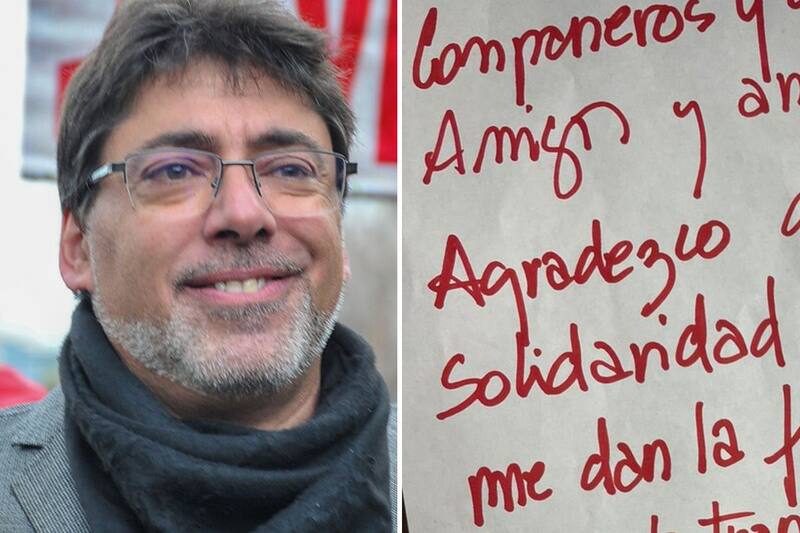 Compañeros y
Amigos y am
Agradezco
Solidaridad
me dan la f